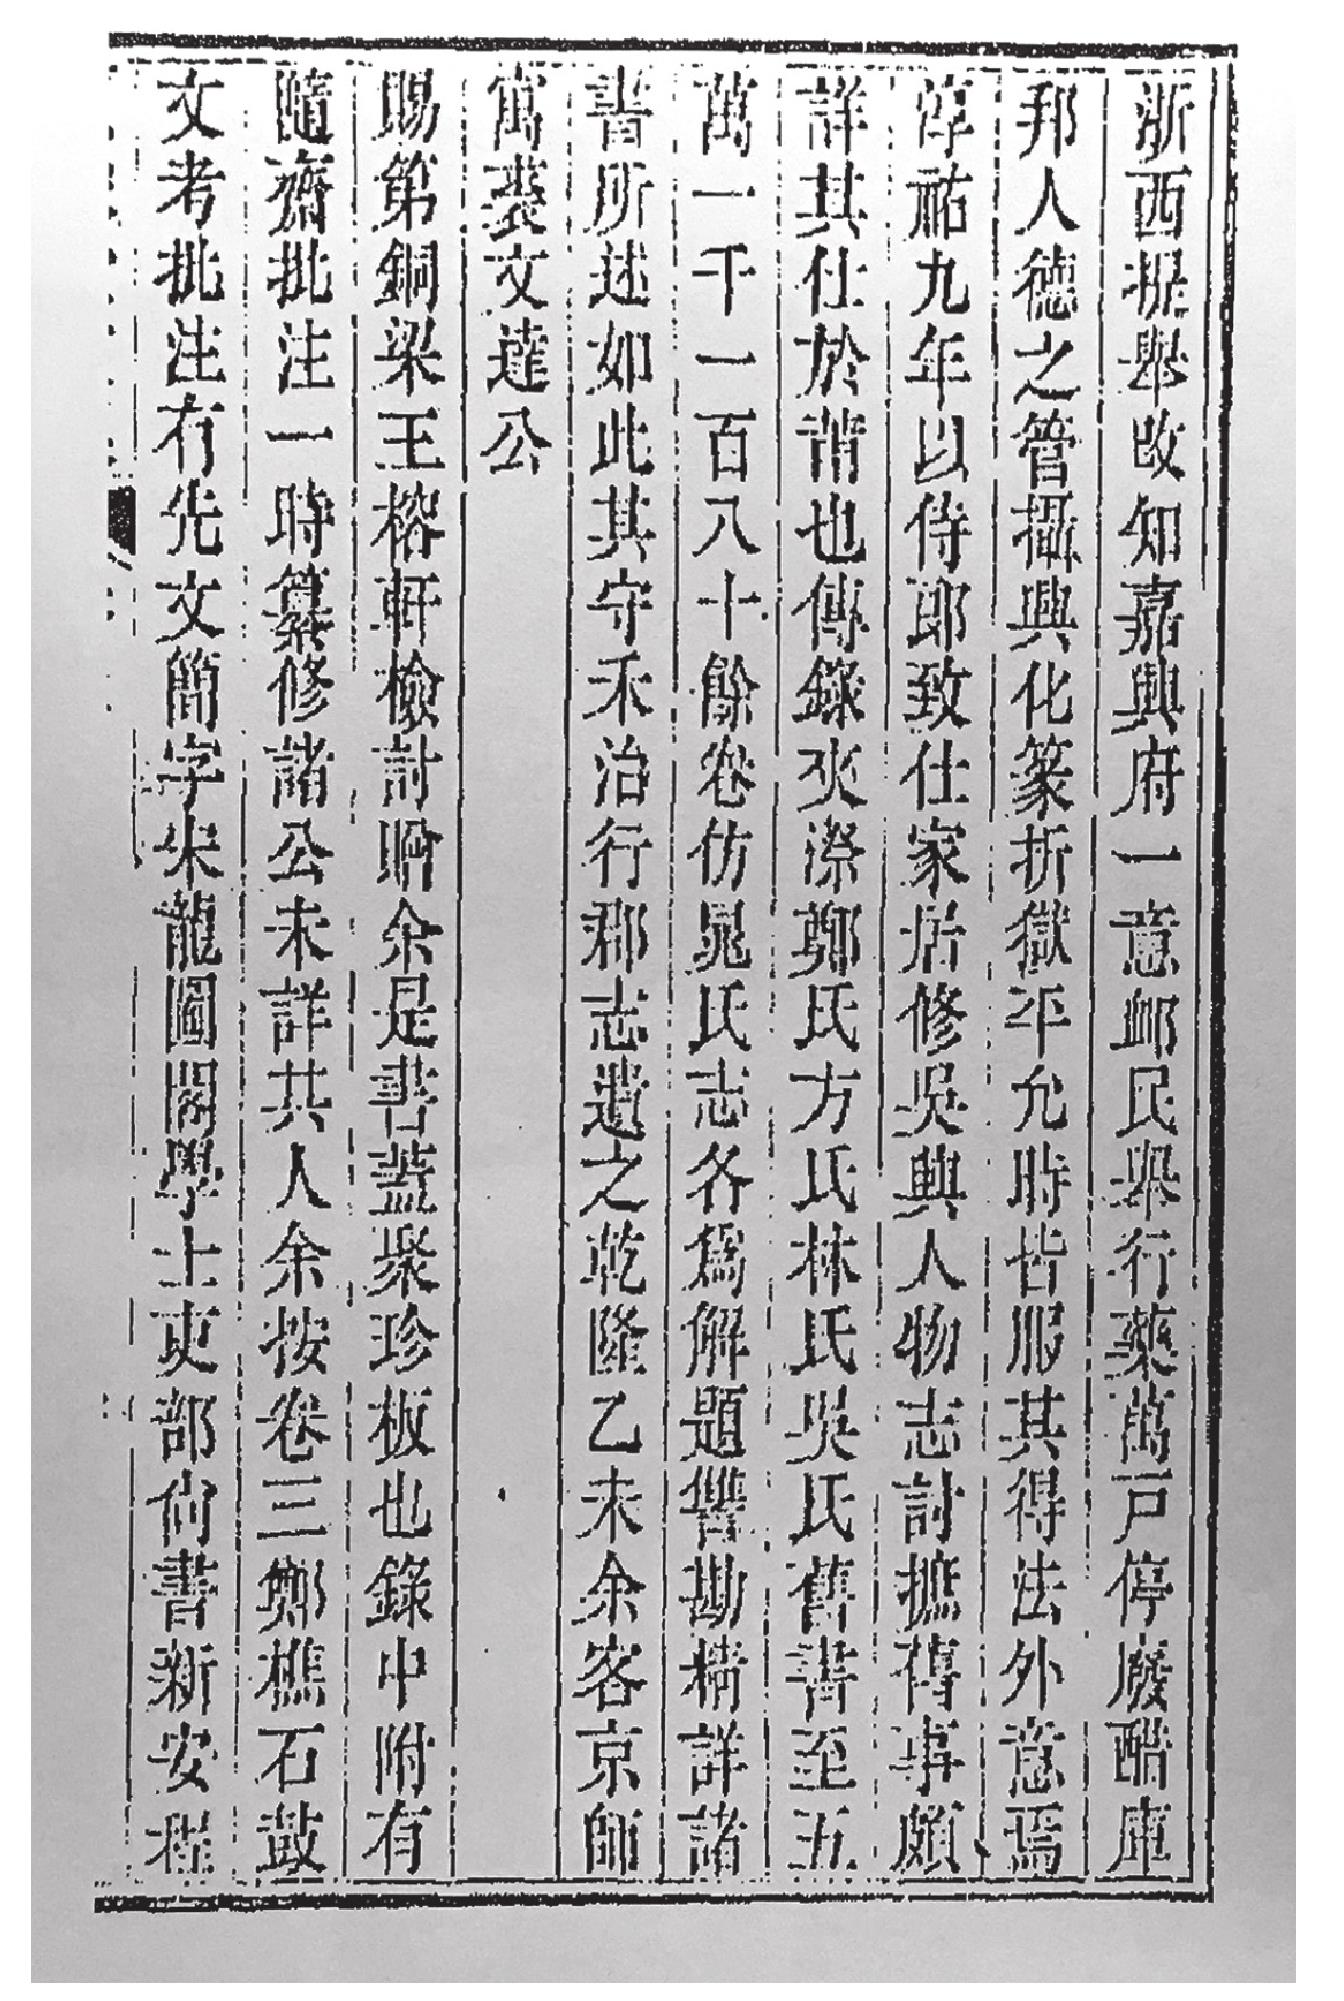 浙西提舉改知嘉興府一意卹民舉行藥萬戸停廢醋庫
邦人德之管攝興化篆折獄平允時皆服其得法外意焉
淳祐九年以侍郎致仕家居修吳興人物志討摭舊事頗
詳其仕於莆也傳錄夾漈鄭氏方氏林氏吳氏舊書至五
萬一千一百八十餘卷仿晁氏志各爲解題讐勘精詳諸
書所述如此其守禾治行郡志遺之乾隆乙未余客京師
寓裘文達公
賜第銅梁王榕軒檢討賙余是書蓋聚珍板也錄中附有
隨齋批注一時纂修諸公未詳其人余按卷三鄭樵石鼓
文考批注有先文簡字宋龍圖閣學士吏部尙書新安程